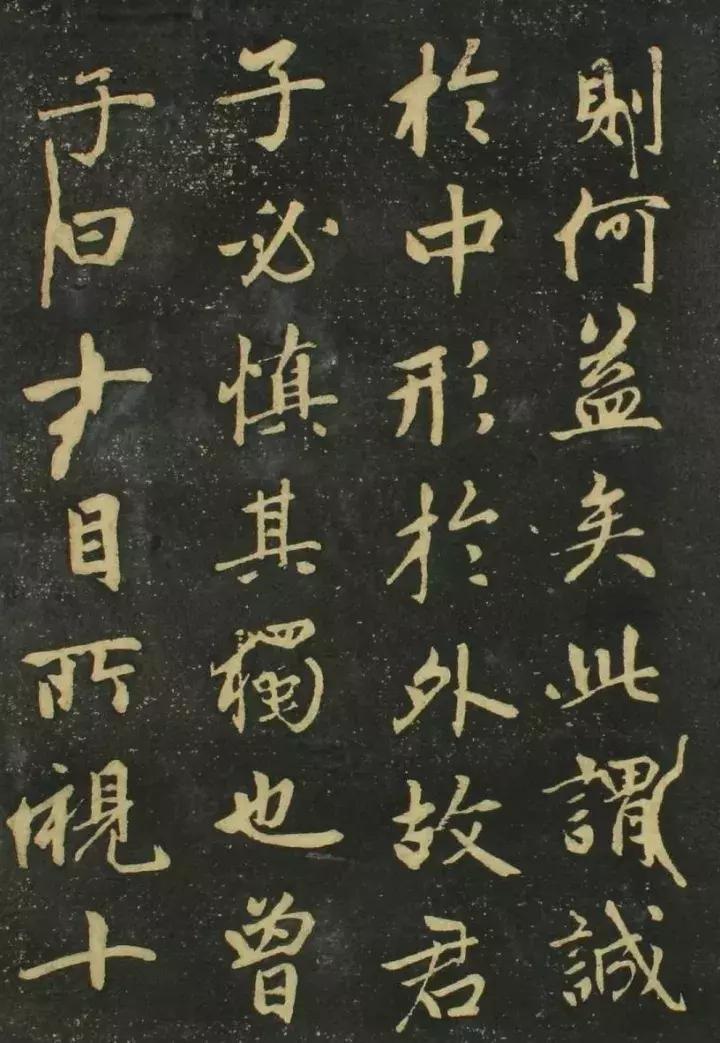 則何益矣此謂誠
於中形於外故君
子必慎其獨也曾
子曰十目所視十